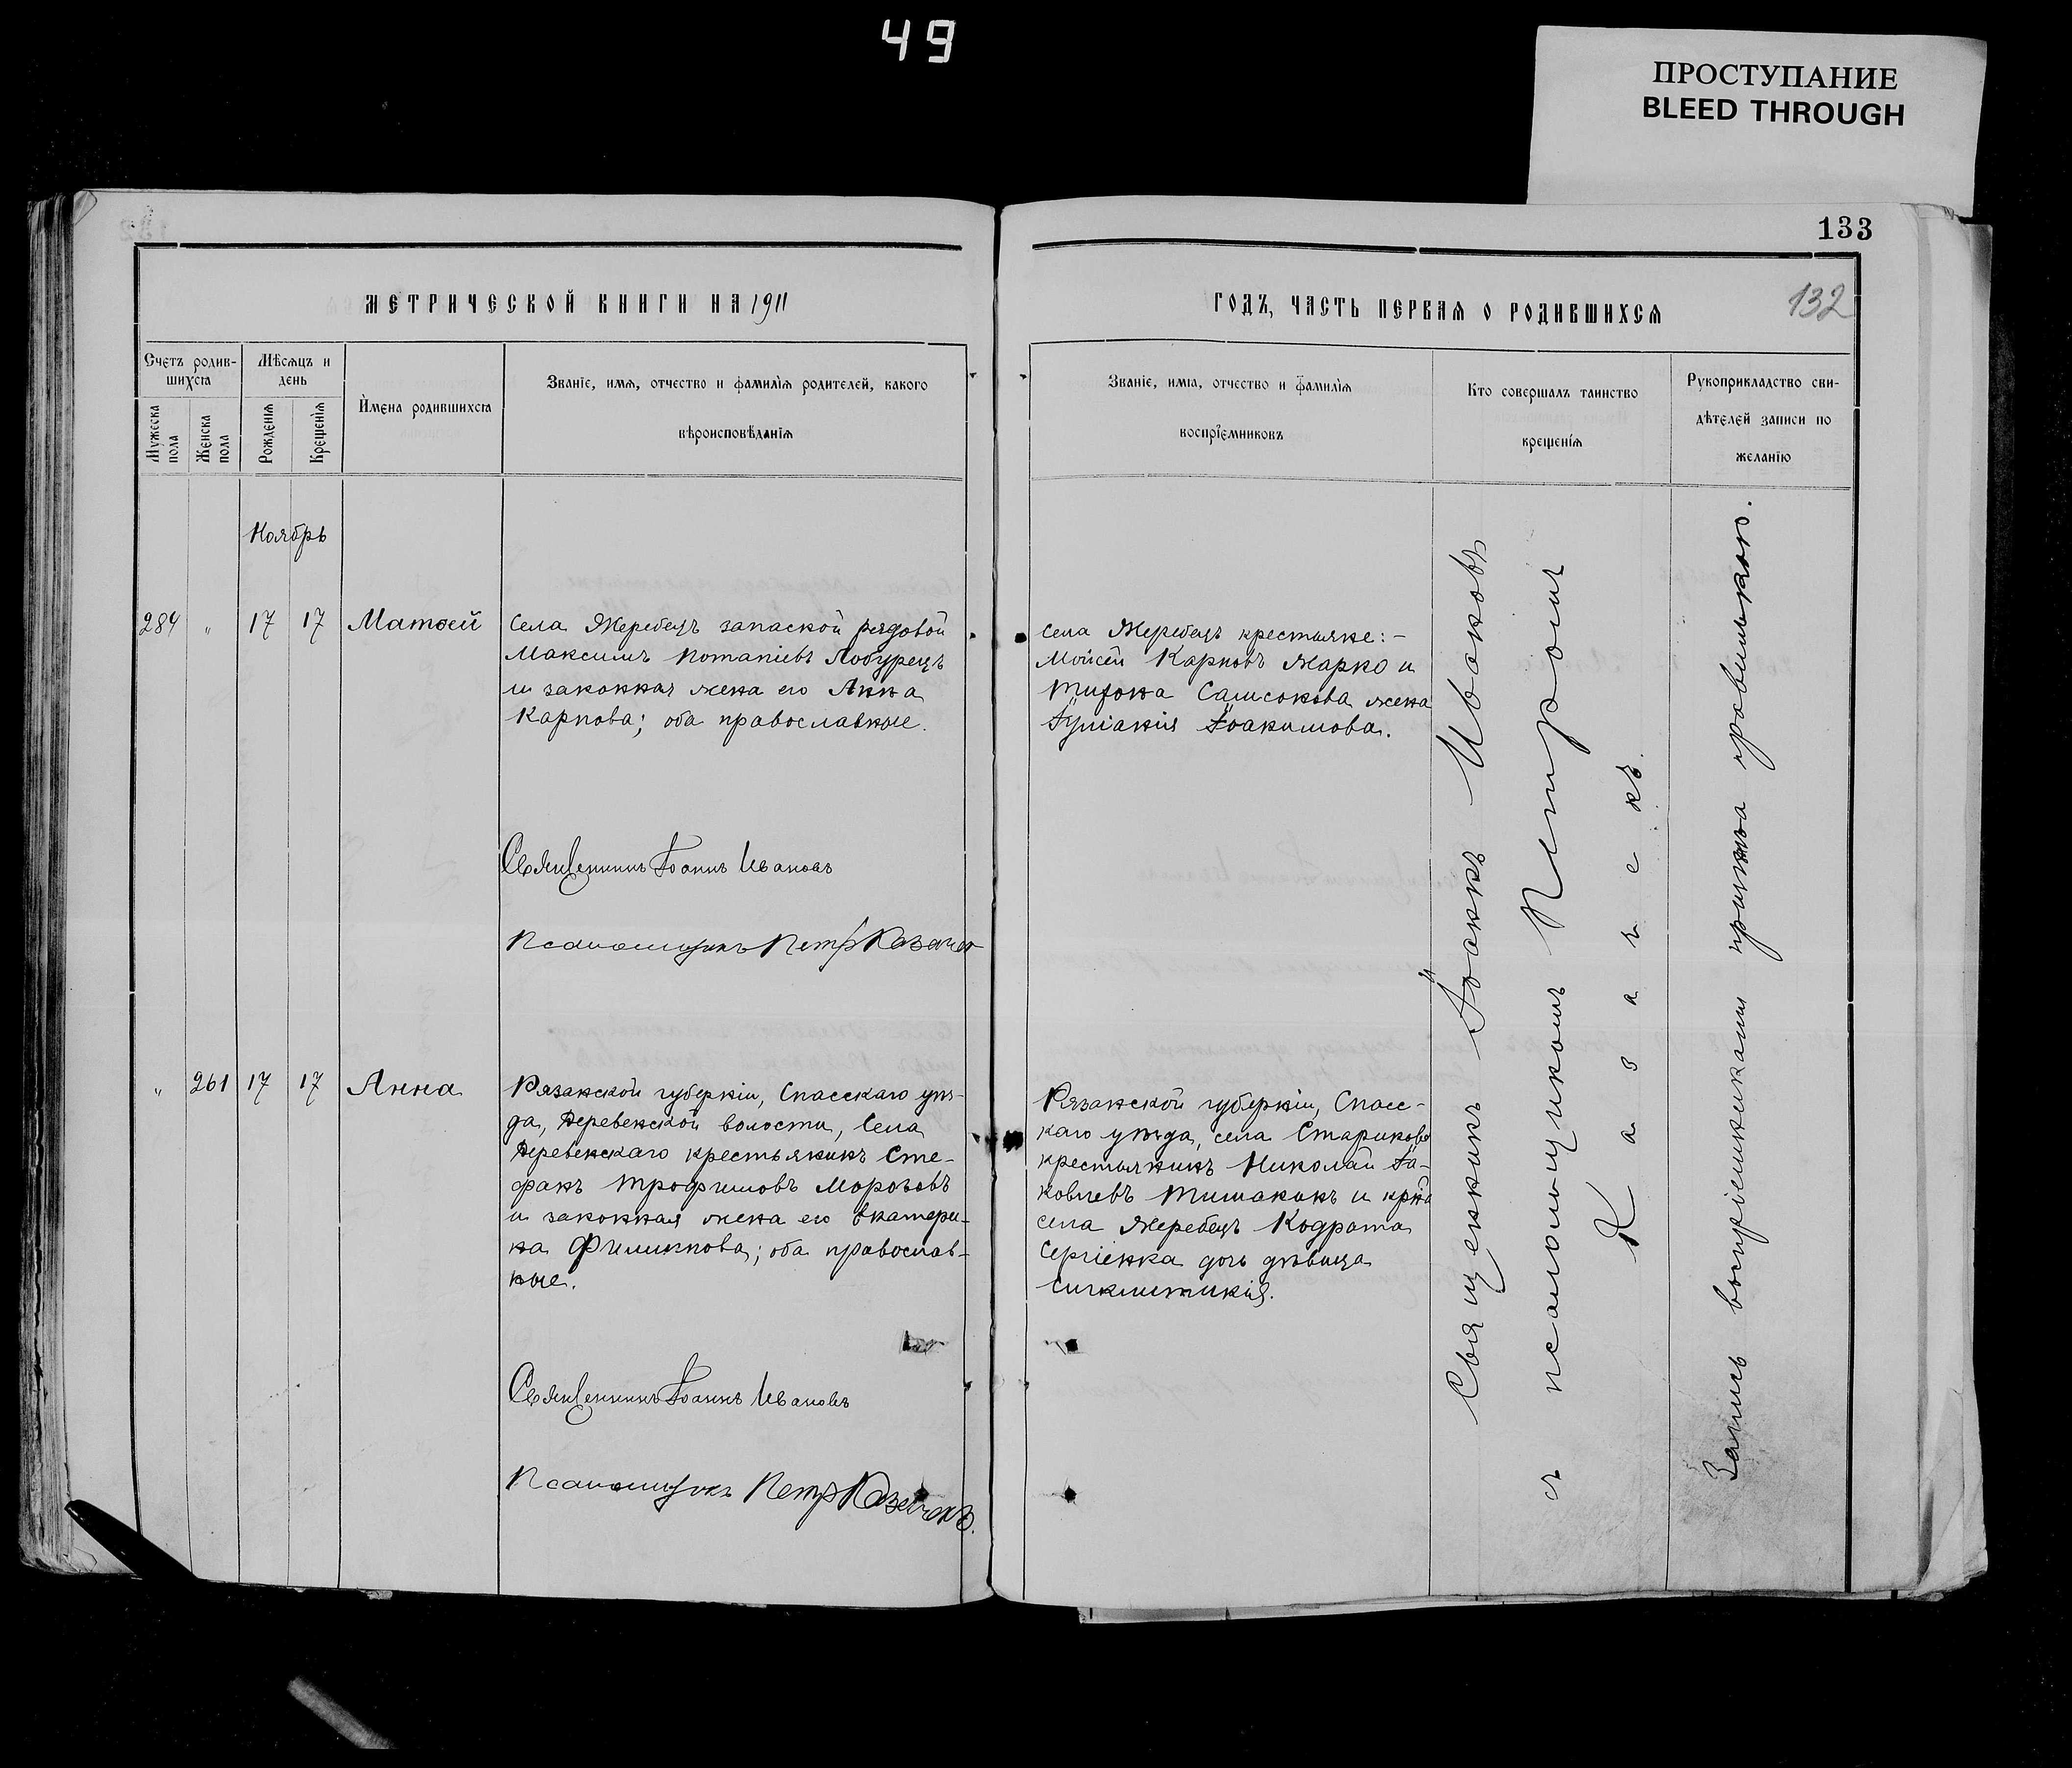 49
ПРОСТУПАНИЕ
BLEED THROUGH
133
МЕТРИЧЕСКОЙ КНИГИ НА 1911
ГОДЪ, ЧАСТЬ ПЕРВАЯ О РОДИВШИХСЯ
132
Счетъ родив-
шихся
Мѣсяцъ и
день
Имена родившихся
Званіе, имя, отчество и фамилія родителей, какого
вѣроисповѣданія
Мужеска
пола
Женска
пола
Рожденія
Крещенія
Званіе, имя, отчество и фамилія
воспріемниковъ
Кто совершалъ таинство
крещенія
Рукоприкладство сви-
дѣтелей записи по
желанію
Ноябрь
284 " 17 17 Матѳей
Села Жеребецъ запасной рядовой
Максимъ Потапіевъ Лобурецъ
и законная жена его Анна
Карпова; оба православные.
Священникъ Іоаннъ Ивановъ
Псаломщикъ Петръ Казачек
Села Жеребецъ крестьяне: -
Мойсей Карповъ Жарко и
Тихона Самсонова жена
Іуліанія Іоакимова.
" 261 17 17 Анна
Рязанской губерніи, Спасскаго уѣз-
да, Деревенской волости, села
Деревенскаго крестьянинъ Сте-
фанъ Трофимовъ Морозовъ
и законная жена его Екатери-
на Филиппова; оба православ-
ные.
Священникъ Іоаннъ Ивановъ
Псаломщикъ Петръ Казачекъ.
Рязанской губерніи, Спасс-
каго уѣзда, села Старикова
крестьянинъ Николай Іа-
ковлевъ Тишакинъ и кр-на
села Жеребецъ Кодрата
Сергіенка дочь дѣвица
Сигклитикія.
Священникъ Іоаннъ Ивановъ
съ псаломщикомъ Петромъ
Казачекъ.
Запись воспріемниками признана правильною.